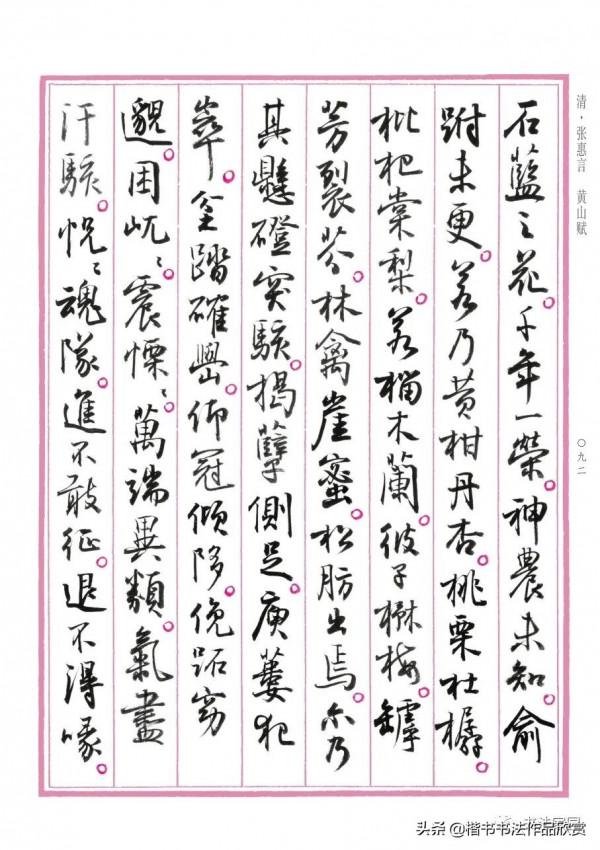 清·张惠言 黄山赋
〇九二
石藍之花。千年一榮。神農未知。俞
跗未更。若乃黄柑丹杏。桃栗杜
枇杷棠梨。若榴木蘭。彼子楙梅。罅
芳裂芬。林禽崖蜜。松肪出焉。尔乃
其懸磴突駭。揭孽側足。庾蔞犯
崒。踏確嶨。仰冠傾陊。俛跖窈
邈。困屼〻震慄〻。萬端異類。氣盡
汗駭。怳〻魂隊。進不敢征。退不得喙。
头条@楷书书法作品欣赏